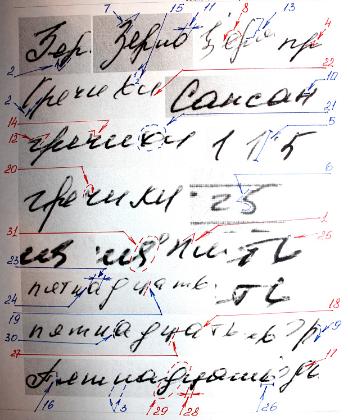 7 15 11 8 13
Зер. Зерно Зер пр 4
2
2 Гречихи Сансан 10
22
14 21
12 гречихи 1 1 5 5
20 6
гречихи 25
31 1
ия ия пят ть 25
23
пятнадцать ть
24
19 18
пятнадцать -в 9
27
пятнадцать 17
30 16 3 29 28 26